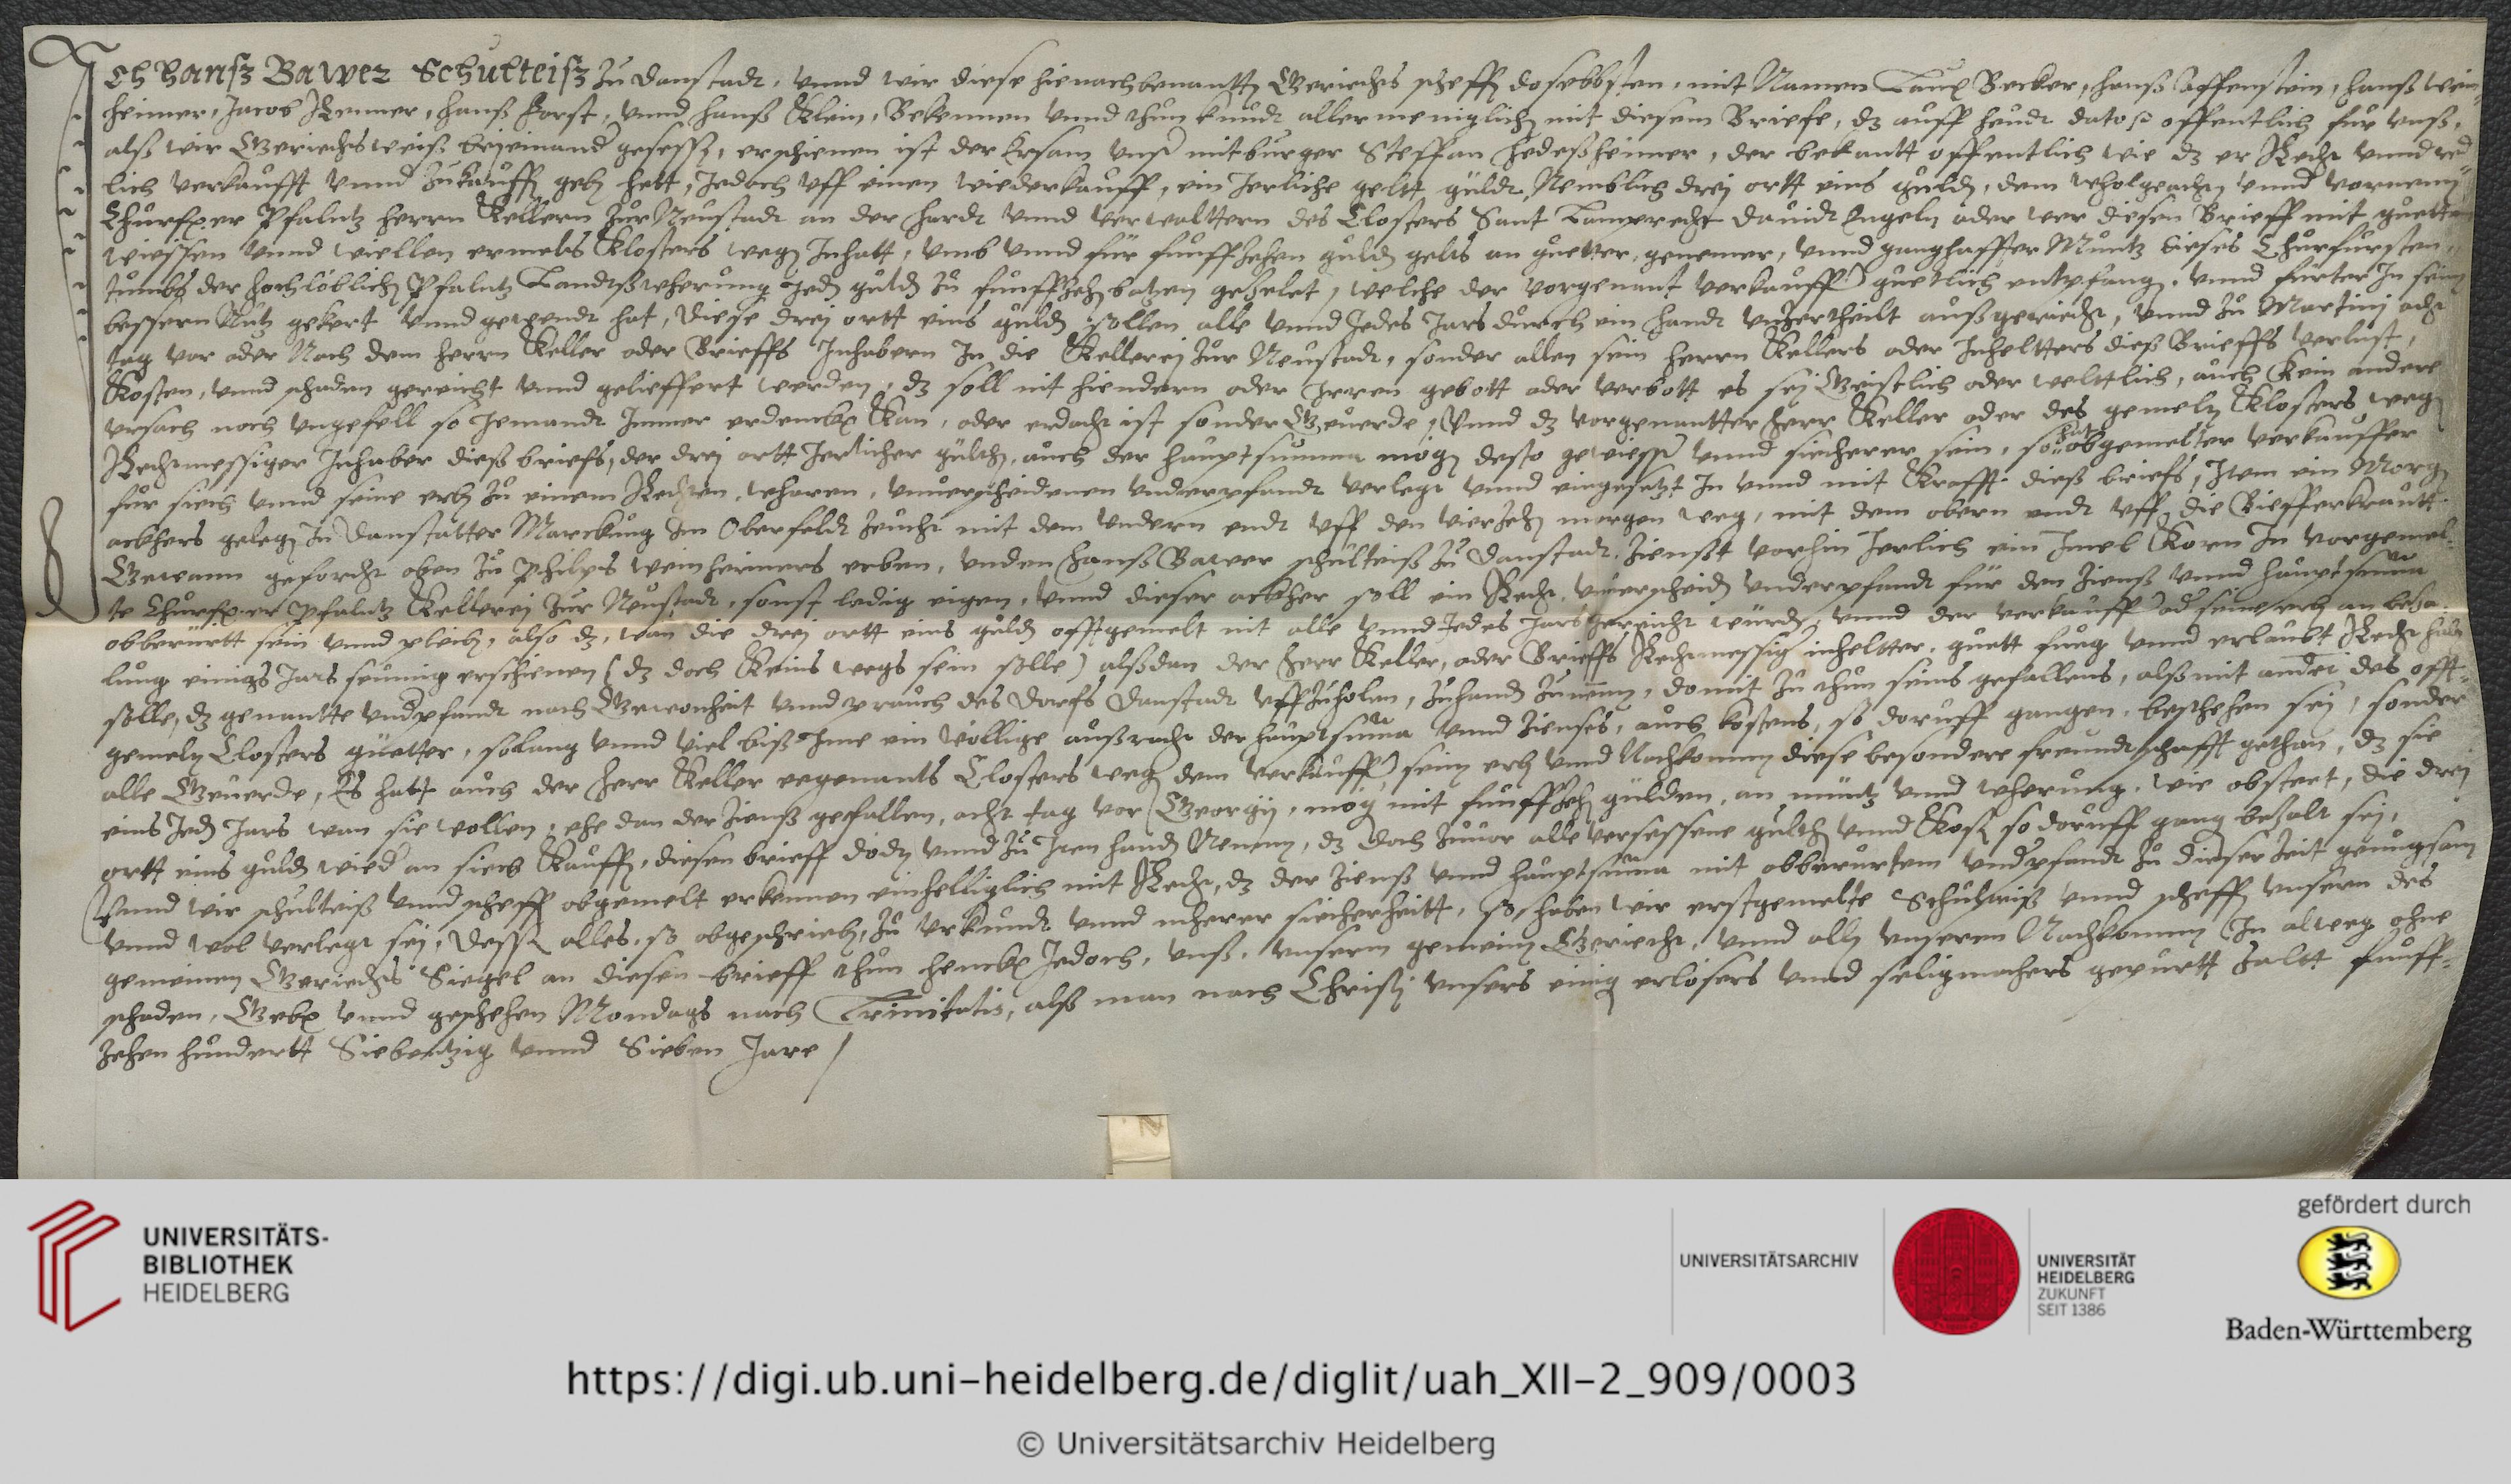 Ich Hansz Bawer Schulteisz zu Danstadt, vnnd wir diese hienachbenantten Gerichts scheffen doselbsten, mit Namen Laux Becker, Hanß Affenstein, Hanß Wein-
heimer, Jacob Renner, Hanß Forst, vnnd Hanß Klein, Bekennen vnnd thun kundt allermeniglich mit diesem Briefe, dz auff heudt dato offentlich für vnß,
alß wir Gerichtsweiß beyeinand gesessen, erschienen ist der Ersam vnser mitburger Steffan Hedeßheimer, der bekantt offentlich wie dz er Recht vnnd red-
lich verkaufft vnnd zukauffen geben hett, Jedoch vff einen wiederkauff, ein Jerliche geltt güldt, Nemblich drej ortt eins gulden, dem wholgeachten vnnd vornemen
Churfr. Pfaltz herrn Kellern zur Neustadt an der Hardt vnnd verwalttern des Closters Sant Lamprecht Dauidt Engeln oder wer diesen Brieff mit guetten
wiessen vnnd wiellen ermelts Klosters wegen Inhatt, vmb vnnd für funffzehen gulden gelts an guetter, genemer, vnnd ganghaffter Müntz dieses Churfursten-
tumbs der hochlöblichen Pfaltz Landtßwherung Jeden gulden zu funffzehen batzen gezelet, welche der vorgenant verkauffer guetlich entpfangen, vnnd fürter In seinen
bessern Nutz gekert vnnd gewendt hat, Diese drej ortt eins gulden sollen alle vnnd Jedes Jars durch ein handt vnzertheilt außgericht, vnnd zu Martini acht
tag vor oder Nach dem herrn Keller oder Brieffs Inhabern In die Kellerej zur Neustadt, sonder allen sein herrn Kellers oder Inheltters dieß Brieffs verlust,
Kosten, vnnd schaden gereicht vnnd gelieffert werden, dz soll nit hiendern oder Irren gebott oder verbott es sej Geistlich oder weltlich, auch kein andere
vrsach noch vngefell so Jemandt Immer erdencken Kan, oder erdacht ist sonder Geuerde, Vnnd dz vorgenantter Herr Keller oder des gemelten Klosters wegen
Rechtmessiger Inhaber dieß briefs, der drej ortt Jerlicher gülten, auch der hauptsumma mögen desto gewiesser vnnd siecherer sein, so hat obgemelter verkauffer
für siech vnnd seine erben zu einem Rechten, wharen, vnuerscheidenen vnderpfandt verlegt vnnd eingesetzt In vnnd mit Krafft dieß briefs, Item ein Morgen
ackhers gelegen In Danstatter Marckung Im Oberfeldt Zeucht mit dem vndern endt vff den vierzehen morgen weg, mit dem obern endt vff die Biefferkrautt
Gewann geforcht oben zu Philips Weinheimers erben, vnden Hanß Bawer schulteiß zu Danstadt, Zienßt vorhin Jerlich ein Imel Korn In vorgemel-
te Churfr. Pfaltz Kellerej zur Neustadt, sonst ledig eigen, vnnd dieser ackher soll ein Recht, vnuerscheiden vnderpfandt für den Zienß vnnd hauptsuma
obberürtt sein vnnd pleiben, also dz, wan die drej ortt eins gulden offtgemelt nit alle vnnd Jedes Jars gereicht würden, vnnd der verkauffer od seine erben an beza-
lung einigs Jars seumig erschienen (dz doch Keins wegs sein solle) alßdan der Herr Keller, oder Brieffs Rechtmessig inheltter, guett fueg vnnd erlaubt Recht haben
solle, dz genantte vndpfandt nach Gewonheit vnnd prauch des Dorfs Danstadt vffzuholen, zuhanden zunemen, domit zu thun seins gefallens, alß mit ander des offt-
gemelten Closters güetter, solang vnnd viel biß Ime ein völlige außracht der hauptsuma vnnd Zienses, auch kostens, so doruff gangen, beschehen sej, sonder
alle Geuerde, Es hatt auch der Herr Keller egenants Closters wegen dem verkauffer, seinen erben vnnd Nachkomen diese besondere freundtschafft gethan, dz sie
eins Jeden Jars wan sie wollen, ehe dan der Zienß gefallen, acht tag vor Georgij, mög mit funffzehen gülden, an müntz vnnd wherung, wie obsteet, die drej
ortt eins gulden wied an siech Kauffen, diesen brieff döden vnnd zu Iren handen Nemen, dz doch zuuor alle versessene gülten vnnd Kosten so doruff gangen bezalt sej,
Vnnd wir schulteiß vnnd scheffen obgemelt erkennen einhelliglich mit Recht, dz der Zienß vnnd hauptsuma mit obberürtem vndpfandt zu dieser Zeit genugsam
vnnd wol verlegt sej, Dessen alles, so obgeschrieben, zu vrkundt vnnd mherer siecherheitt, so haben wir erstgemelte Schulteiß vnnd scheffen vnsern des
gemeinen Gerichts Siegel an diesen brieff thun hencken Jedoch, vnß, vnserm gemeinen Gericht, vnnd allen vnseren Nachkomen In alweg ohne
schaden, Geben vnnd geschehen Mondags nach Trinitatis, alß man nach Christi vnsers einig erlösers vnnd seligmachers gepurtt zaltt funff-
zehen hundertt Siebentzig vnnd Sieben Jare
UNIVERSITÄTS-
BIBLIOTHEK
HEIDELBERG
UNIVERSITÄTSARCHIV
UNIVERSITÄT
HEIDELBERG
ZUKUNFT
SEIT 1386
gefördert durch
Baden-Württemberg
https://digi.ub.uni-heidelberg.de/diglit/uah_XII-2_909/0003
© Universitätsarchiv Heidelberg